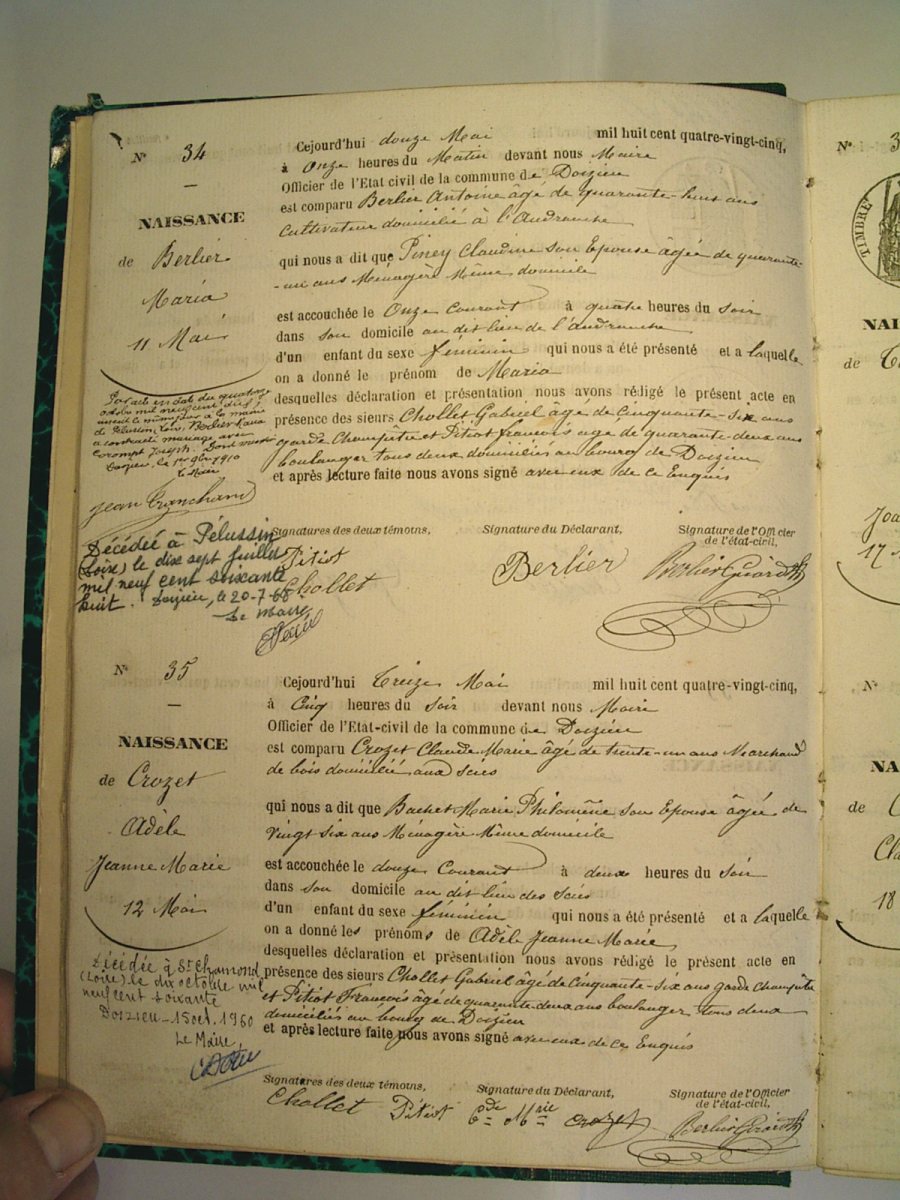 N° 34
NAISSANCE
de Berlier
Maria
11 Mai
Cejourd'hui douze Mai mil huit cent quatre-vingt-cinq,
à Onze heures du Matin devant nous Maire
Officier de l'Etat civil de la commune de Doizieu
est comparu Berlier Antoine âgé de quarante huit ans
Cultivateur domicilié à l'Audranche
qui nous a dit que Piney Claudine son Epouse âgée de quarante-
-un ans Ménagère Même domicile
est accouchée le Onze Courant à quatre heures du soir
dans son domicile au dit lieu de l'Audranche
d'un enfant du sexe féminin qui nous a été présenté et a laquelle
on a donné le prénom de Maria
desquelles déclaration et présentation nous avons rédigé le présent acte en
présence des sieurs Chollet Gabriel âgé de Cinquante-six ans
garde Champêtre et Pitiot françois âgé de quarante-deux ans
boulanger tous deux domiciliés au bourg de Doizieu
et après lecture faite nous avons signé avec eux de ce Enquis
Par acte en date du quatorze
octobre mil neuf cent dix
inscrit le même jour à la mairie
de Pélussin, Loire, Berlier Maria
a contracté mariage avec
Corompt Joseph. Dont mention
Le Maire
Jean Granchand
Décédée à Pélussin
(Loire) le dix sept juillet
mil neuf cent soixante
huit. Doizieu, le 20-7-68
Le Maire
Signatures des deux témoins,
Signature du Déclarant,
Signature de l'Officier
de l'état-civil,
Pitiot
Chollet
Berlier
Berlier Girardet
N° 35
NAISSANCE
de Crozet
Adèle
Jeanne Marie
12 Mai
Cejourd'hui Treize Mai mil huit cent quatre-vingt-cinq,
à Cinq heures du Soir devant nous Maire
Officier de l'Etat-civil de la commune de Doizieu
est comparu Crozet Claude Marie âgé de trente-un ans Marchand
de bois domicilié aux Scies
qui nous a dit que Bachet Marie Philomène son Epouse âgée de
vingt six ans Ménagère Même domicile
est accouchée le douze Courant à deux heures du Soir
dans son domicile au dit lieu des Scies
d'un enfant du sexe féminin qui nous a été présenté et a laquelle
on a donné les prénoms de Adèle Jeanne Marie
desquelles déclaration et présentation nous avons rédigé le présent acte en
présence des sieurs Chollet Gabriel âgé de Cinquante-six ans garde Champêtre
et Pitiot François âgé de quarante-deux ans boulanger tous deux
domiciliés au bourg de Doizieu
et après lecture faite nous avons signé avec eux de ce Enquis
Décédée à St Chamond
(Loire) le dix octobre mil
neuf cent soixante
Doizieu - 15 oct. 1960
Le Maire,
Signatures des deux témoins,
Signature du Déclarant,
Signature de l'Officier
de l'état-civil,
Chollet Pitiot Cde Mrie Crozet
Berlier Girardet
N° 3
TIMBRE
NAI
de
17
N°
NA
de
18